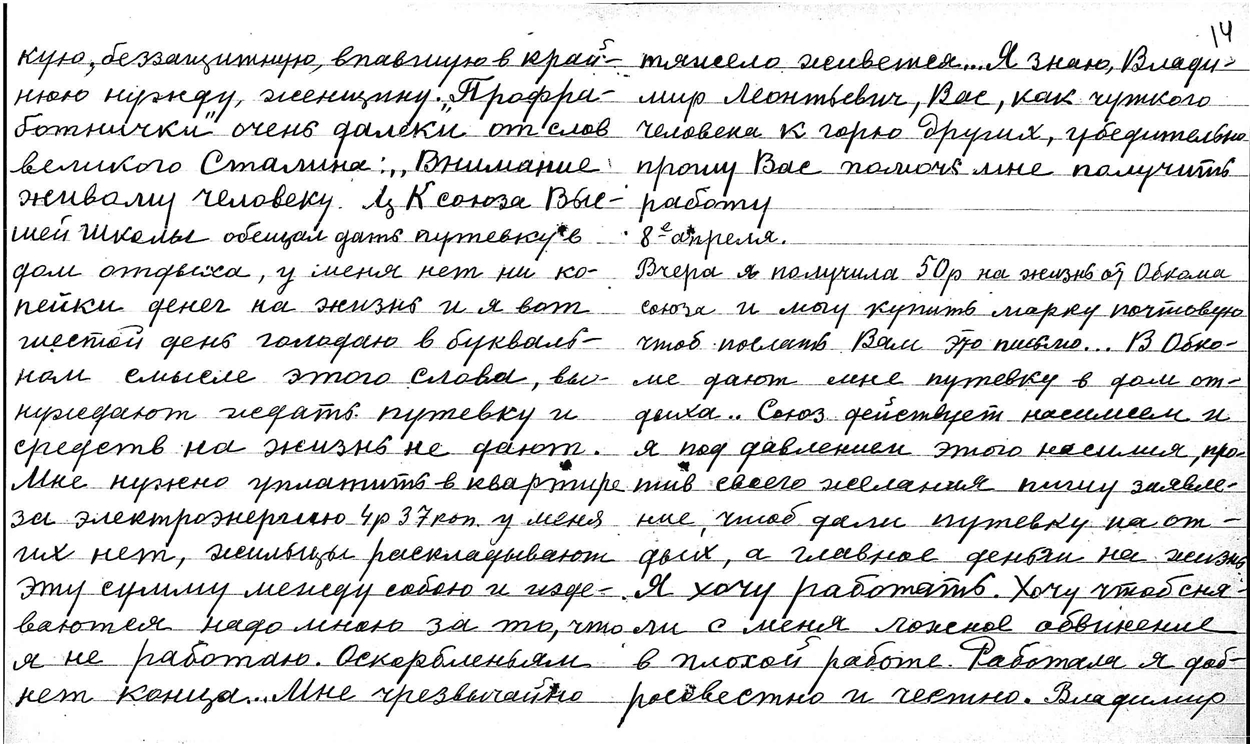 14
кую, беззащитную, впавшую в край-
нюю нужду, женщину. „Профра-
ботнички" очень далеки от слов
великого Сталина: „Внимание
живому человеку. Ц К союза Выс-
шей Школы обещал дать путевку в
дом отдыха, у меня нет ни ко-
пейки денег на жизнь и я вот
шестой день голодаю в букваль-
ном смысле этого слова, вы-
нуждают ждать путевку и
средств на жизнь не дают.
Мне нужно уплатить в квартире
за электроэнергию 4р 37коп. у меня
их нет, жильцы раскладывают
эту сумму между собою и изде-
ваются надо мною за то, что
я не работаю. Оскорбленьям
нет конца... Мне чрезвычайно
тяжело живется... Я знаю, Влади-
мир Леонтьевич, Вас, как чуткого
человека к горю других, убедительно
прошу Вас помочь мне получить
работу
8е апреля.
Вчера я получила 50р на жизнь от Обкома
союза и могу купить марку почтовую
чтоб послать Вам это письмо... В Обко-
ме дают мне путевку в дом от-
дыха.. Союз действует насилием и
я под давлением этого насилия, про-
тив своего желания пишу заявле-
ние, чтоб дали путевку на от-
дых, а главное деньги на жизнь.
Я хочу работать. Хочу чтоб сня-
ли с меня ложное обвинение
в плохой работе. Работала я доб-
росовестно и честно. Владимир